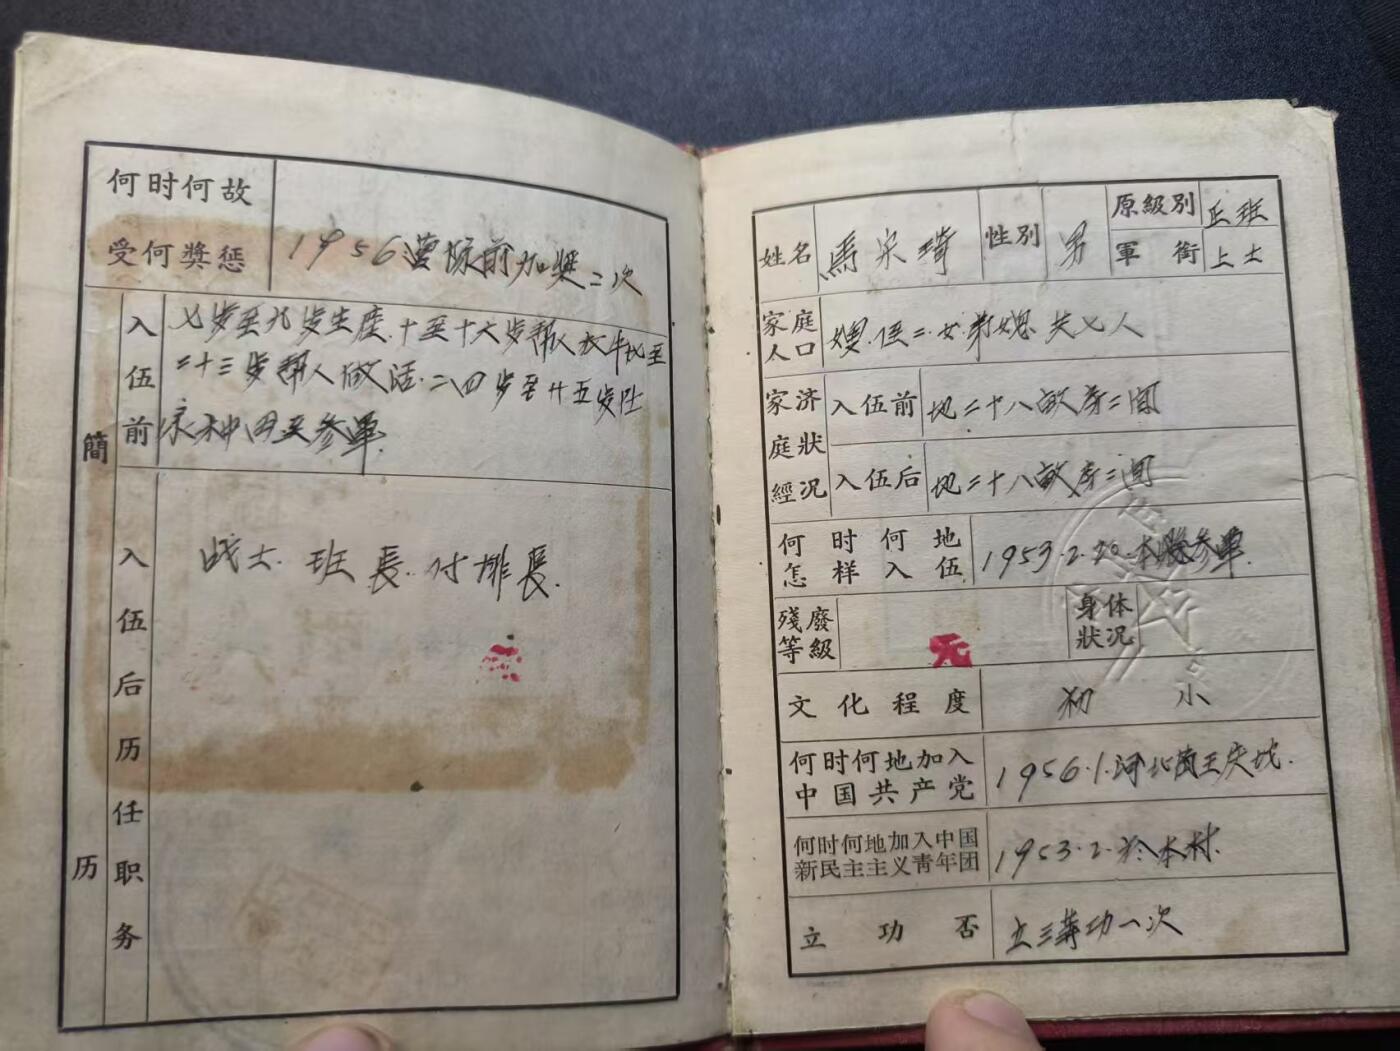 何时何故
受何獎惩
1956 队前加奨二次
入伍前
七岁至九岁生座.十至十六岁帮人放牛 至
二十三岁帮人做活.二四岁至廿五岁
种田至参軍.
簡历
入伍后历任职务
战士.班長.付排長.
无
姓名
馬宋
性別
男
原級別
正班
軍銜
上士
家庭
人口
嫂.侄二.女.弟媳.共七人
家济
庭狀
經况
入伍前
地二十八畝房三間
入伍后
地二十八畝房三間
何时何地
怎样入伍
1953.2.20.本縣参軍.
殘廢
等級
无
身体
狀况
文化程度
初小
何时何地加入
中国共产党
1956.1.河北
何时何地加入中国
新民主主义青年团
1953.2.於本村.
立功否
立三等功一次